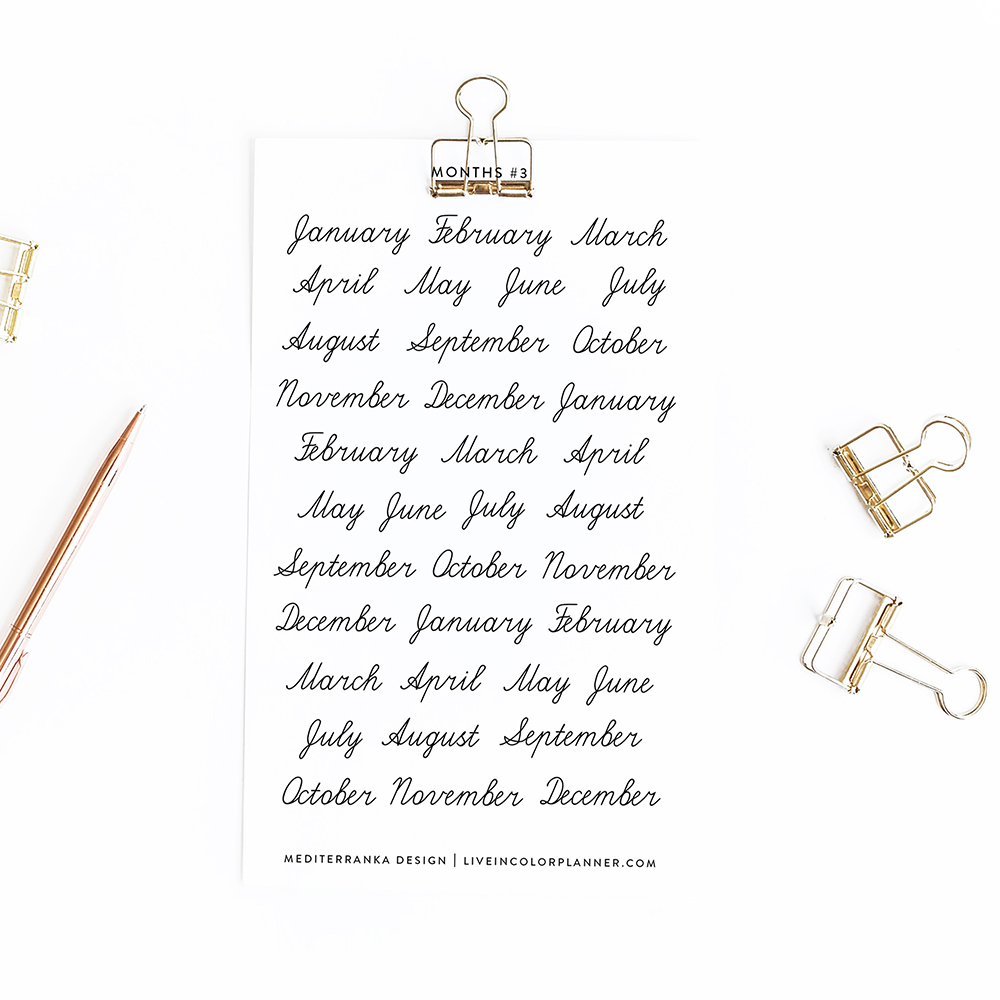 MONTHS #3
January February March
April May June July
August September October
November December January
February March April
May June July August
September October November
December January February
March April May June
July August September
October November December
MEDITERRANKA DESIGN | LIVEINCOLORPLANNER.COM